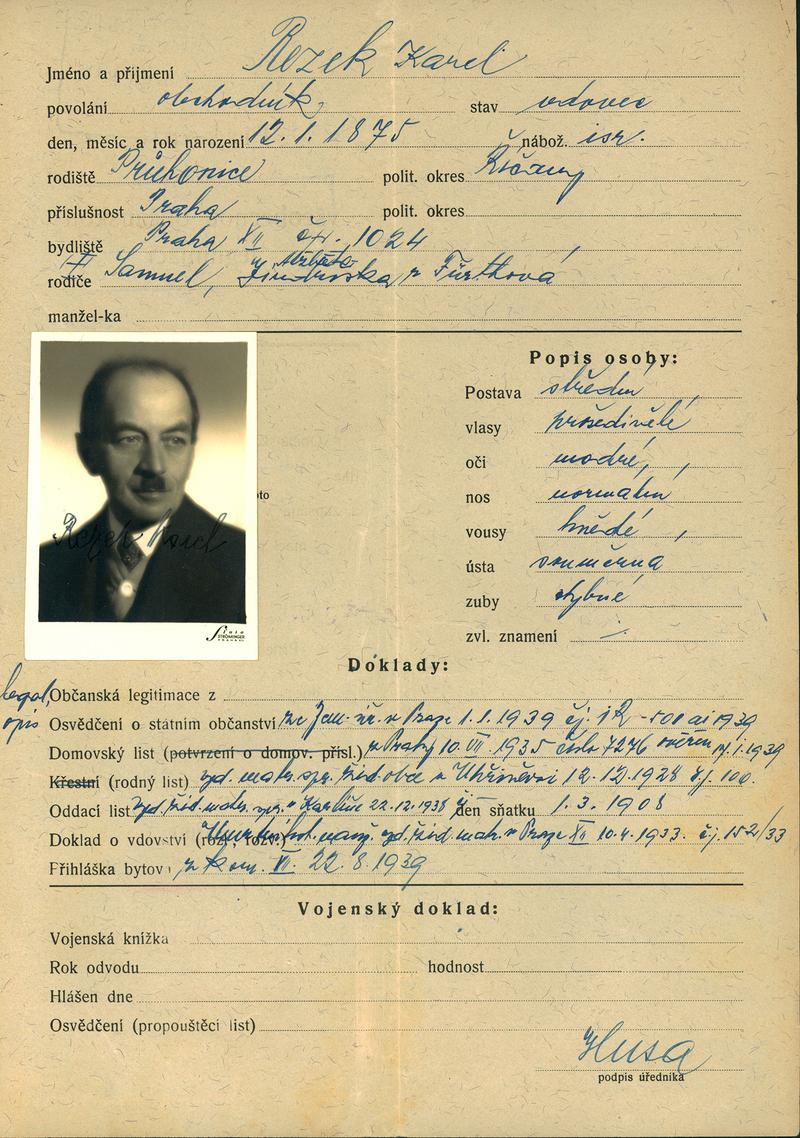 Jméno a příjmení Rezek Karel
povolání obchodník, stav vdovec
den, měsíc a rok narození 12. 1. 1875 nábož. isr.
rodiště Průhonice polit. okres Říčany
příslušnost Praha polit. okres
bydliště Praha XII čp. 1024
rodiče † Samuel, Jindřiška r. Fürthová
manžel-ka
oto
Rezek Karel
Foto
STRÖMINGER
Popis osoby:
Postava střední
vlasy prošedivělé
oči modré,
nos normální
vousy hnědé,
ústa souměrná
zuby chybné
zvl. znamení
Doklady:
legal.
opis
Občanská legitimace z
Osvědčení o státním občanství ze Zem. úř. v Praze 1. 1. 1939 čj. 1939
Domovský list (potvrzení o domov. přísl.) v Praze 10. VII. 1935 číslo 7276 1939
Křestní (rodný list) žid. obce v Uhříněvsi 12. 12. 1928 čj. 100.
Oddací list žid. matr. v Karlíně 22. 12. 1938 den sňatku 1. 3. 1908
Doklad o vdovství (rozl. rozv.) Úmrtní list manž. vyd. žid. matr. v Praze XII 10. 4. 1933. čj. 152/33
Přihláška bytov. z kom. VII. 22. 8. 1939
Vojenský doklad:
Vojenská knížka
Rok odvodu hodnost
Hlášen dne
Osvědčení (propouštěcí list)
Husa
podpis úředníka